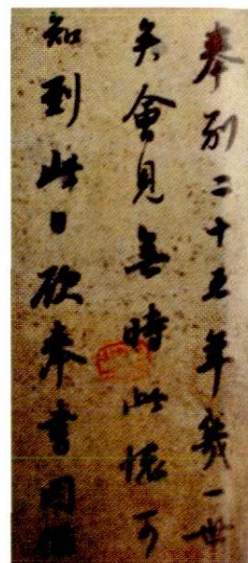 奉別二十五年幾一世
矣會見無時此懷可
知到此日欲奉書因循